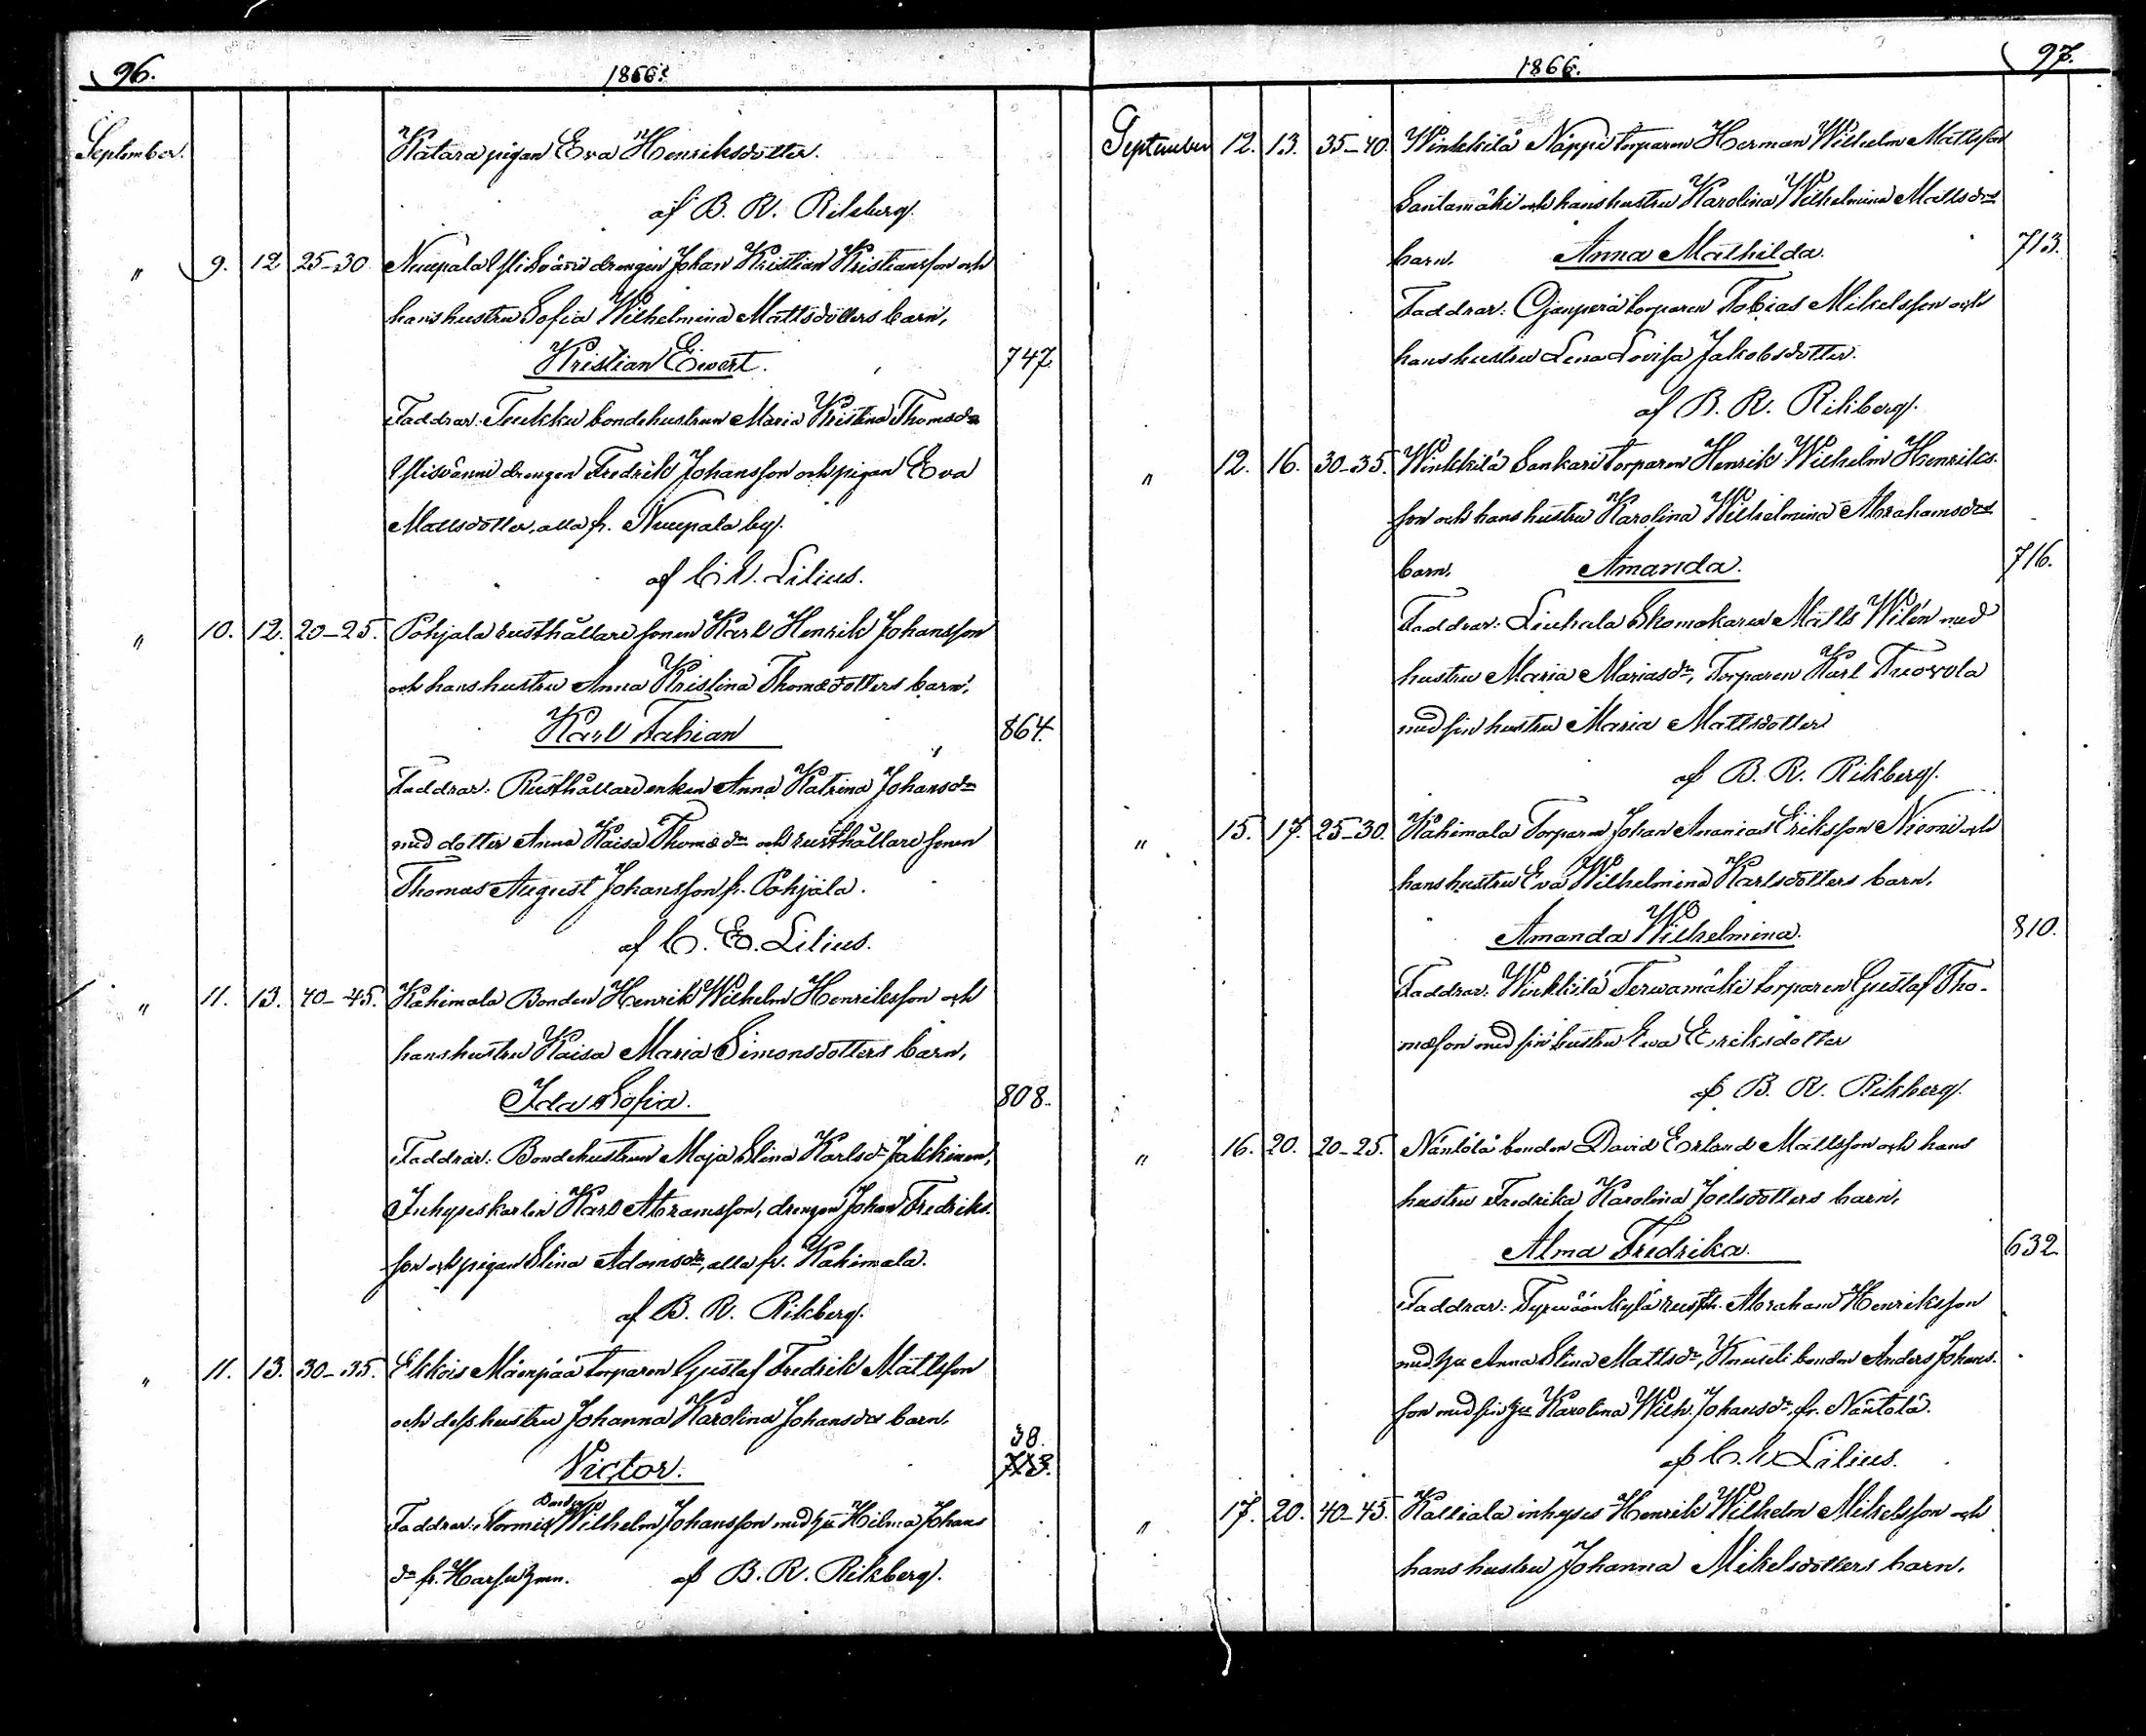 96.
1866.
September.
Kätara pigan Eva Henriksdotter.
af B. R. Rikberg.
" 9. 12 25-30. Nuupala Ylisvänni drengen Johan Kristian Kristiansson och
hans hustru Sofia Wilhelmina Mattsdotters barn,
Kristian Ewert. 747.
Faddrar: Tuukku bondehustrun Maria Kristina Thomadr
Ylisvänni drengen Fredrik Johansson och pigan Eva
Mattsdotter, alla fr. Nuupala by.
af C. E. Lilius.
" 10. 12. 20-25. Pohjala rusthållare sonen Karl Henrik Johansson
och hans hustru Anna Kristina Thomædotters barn,
Karl Fabian 864.
Faddrar: Rusthållare enkan Anna Katrina Johansdr
med dotter Anna Kaisa Thomædr och rusthållare sonen
Thomas August Johansson fr. Pohjala.
af C. E. Lilius.
" 11. 13. 40-45. Kahimala Bonden Henrik Wilhelm Henriksson och
hans hustru Kaisa Maria Simonsdotters barn,
Ida Sofia. 808.
Faddrar: Bondehustrun Maja Stina Karlsdr Jakkinen,
Inhyseskarlen Karl Abramsson, drengen Johan Fredriks-
son och pigan Stina Adamsdr, alla fr. Kahimala.
af B. R. Rikberg.
" 11. 13. 30-35. Ekkois Mäenpää torparen Gustaf Fredrik Mattsson
och dess hustru Johanna Karolina Johansdrs barn,
38.
Victor. 713.
Bonden
Faddrar: Normio Wilhelm Johansson med hu Hilma Johans
dr fr. af B. R. Rikberg.
1866.
97.
September 12. 13. 35-40. Winkkilä Näppi torparen Herman Wilhelm Mattsson
Santamäki och hans hustru Karolina Wilhelmina Mattsdrs
barn, Anna Mathilda. 713.
Faddrar: Ojanperä torparen Tobias Mikelsson och
hans hustru Lena Lovisa Jakobsdotter.
af B. R. Rikberg.
" 12. 16. 30-35. Winkkilä Sankari torparen Henrik Wilhelm Henriks-
son och hans hustru Karolina Wilhelmina Abrahamsdrs
barn, Amanda. 716.
Faddrar: Liuhala Skomakaren Matts Wilén med
hustru Maria Mariasdr, Torparen Karl Tuovola
med sin hustru Maria Mattsdotter
af B. R. Rikberg.
" 15. 17. 25-30. Kahimala Torparen Johan Ananias Eriksson Niemi och
hans hustru Eva Wilhelmina Karlsdotters barn,
Amanda Wilhelmina. 810.
Faddrar: Winkkilä Terwamäki torparen Gustaf Tho-
mæson med sin hustru Eva Eriksdotter
af B. R. Rikberg.
" 16. 20. 20-25. Näntölä bonden David Erland Mattsson och hans
hustru Fredrika Karolina Joelsdotters barn,
Alma Fredrika. 632
Faddrar: Tyrwäänkylä rusth. Abraham Henriksson
med hu Anna Stina Mattsdr, Knuuti bonden Anders Johans-
son med sin hu Karolina Wilh. Johansdr, fr. Näntölä.
af C. E. Lilius.
" 17. 20. 40-45. Kalliala inhyses Henrik Wilhelm Mikelsson och
hans hustru Johanna Mikelsdotters barn,